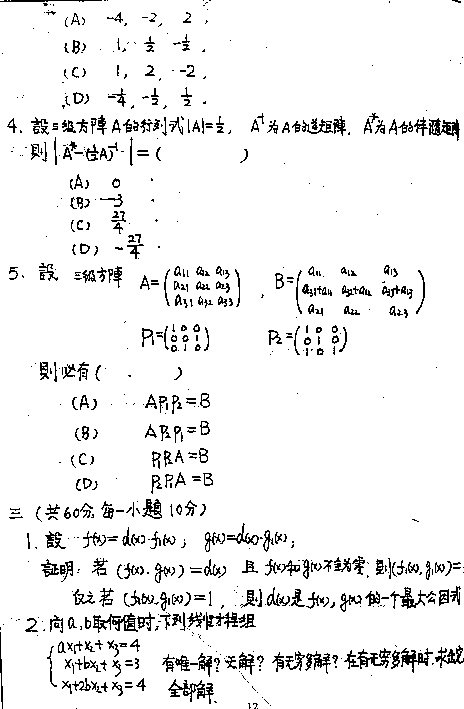 (A) -4, -2, 2,
(B) 1, 1/2, -1/2,
(C) 1, 2, -2,
(D) -1/4, -1/2, 1/2.
4. 設三级方陣A的行列式|A|=1/2, A⁻¹为A的逆矩陣, A*为A的伴随矩陣
则|A*-(1/2A)⁻¹|=( )
(A) 0
(B) -3
(C) 27/4
(D) -27/4
5. 設 三级方陣 A=(a11 a12 a13 / a21 a22 a23 / a31 a32 a33), B=(a11 a12 a13 / a31+a11 a32+a12 a33+a13 / a21 a22 a23)
P1=(1 0 0 / 0 0 1 / 0 1 0) P2=(1 0 0 / 0 1 0 / 1 0 1)
则必有( )
(A) AP1P2=B
(B) AP2P1=B
(C) P1P2A=B
(D) P2P1A=B
三 (共60分, 每一小題10分)
1. 設 f(x)=d(x)·f1(x), g(x)=d(x)·g1(x),
証明: 若 (f(x), g(x))=d(x) 且 f(x)和g(x)不全为零, 则(f1(x), g1(x))=
反之若 (f1(x), g1(x))=1, 则d(x)是f(x), g(x)的一个最大公因式
2. 问a,b取何值时,下列线性方程组
ax1+x2+x3=4
x1+bx2+x3=3 有唯一解? 无解? 有无穷多解? 在有无穷多解时,求出
x1+2bx2+x3=4 全部解.